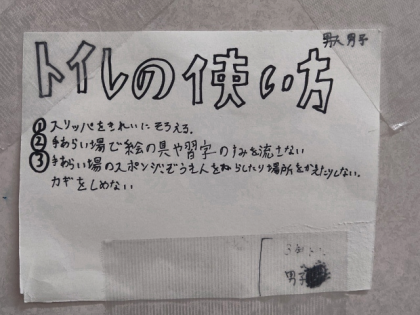 男子
トイレの使い方
①スリッパをきれいにそろえる.
②手あらい場で絵の具や習字のすみを流さない
③手あらい場のスポンジ、ぞうきんをぬらしたり場所をかえたりしない。
カギをしめない
男子